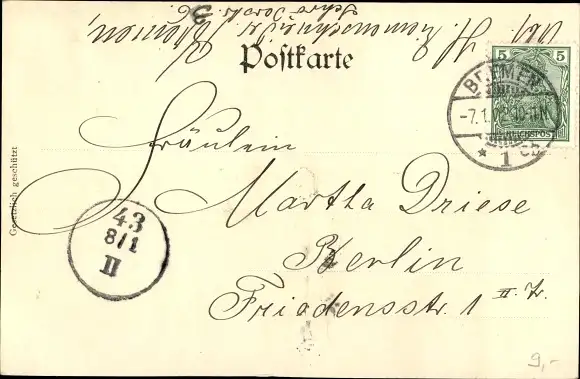 Postkarte
5 5
BREMEN
-7.1.02 10-11N
REICHSPOST
* 1 cb
Fräulein
Martha Driese
Berlin
Friedensstr. 1 II. Tr.
43
8/1
II
Gesetzlich geschützt
9,-